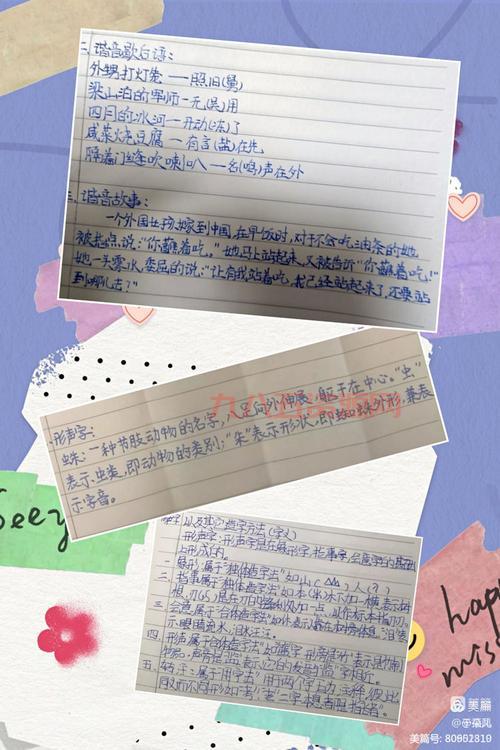 二、谐音歇后语:
外甥打灯笼——照旧(舅)
梁山泊的军师—无(吴)用
四月的冰河—开动(冻)了
咸菜烧豆腐—有言(盐)在先
隔着门缝吹喇叭—名(鸣)声在外
三、谐音故事:
一个外国女孩嫁到中国,在早饭时,对于不会吃油条的她
被指点说:“你蘸着吃。”她马上站起来,又被告诉“你蘸着吃!”
她一头雾水,委屈的说:“让我站着吃,我已经站起来了,还要站
到哪儿去?”
形声字:
蛛:一种节肢动物的名字,八足向外伸展,躯干在中心。“虫”
表示虫类,即动物的类别;“朱”表示形状,即蜘蛛外形,兼表
示字音。
九八五资源网
以及其它造字方法(字义)
形声字:形声字是在象形字、指事字、会意字的基础
上形成的。
一、象形:属于“独体造字法”如山
二、指事:属于“独体造字法”如本
三、会意:属于“合体造字法”
示眼睛流水,泪水汪汪。
四、形声:属于合体造字法
五、转注:属于“用字法”
Seez
happ
miss
美篇
美篇号: 80962819